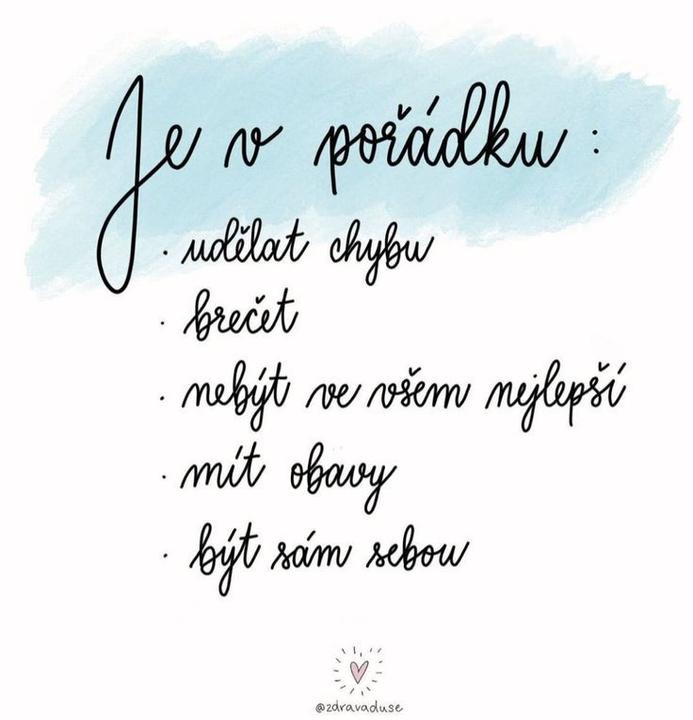 Je v pořádku:
· udělat chybu
· brečet
· nebýt ve všem nejlepší
· mít obavy
· být sám sebou
@zdravaduse